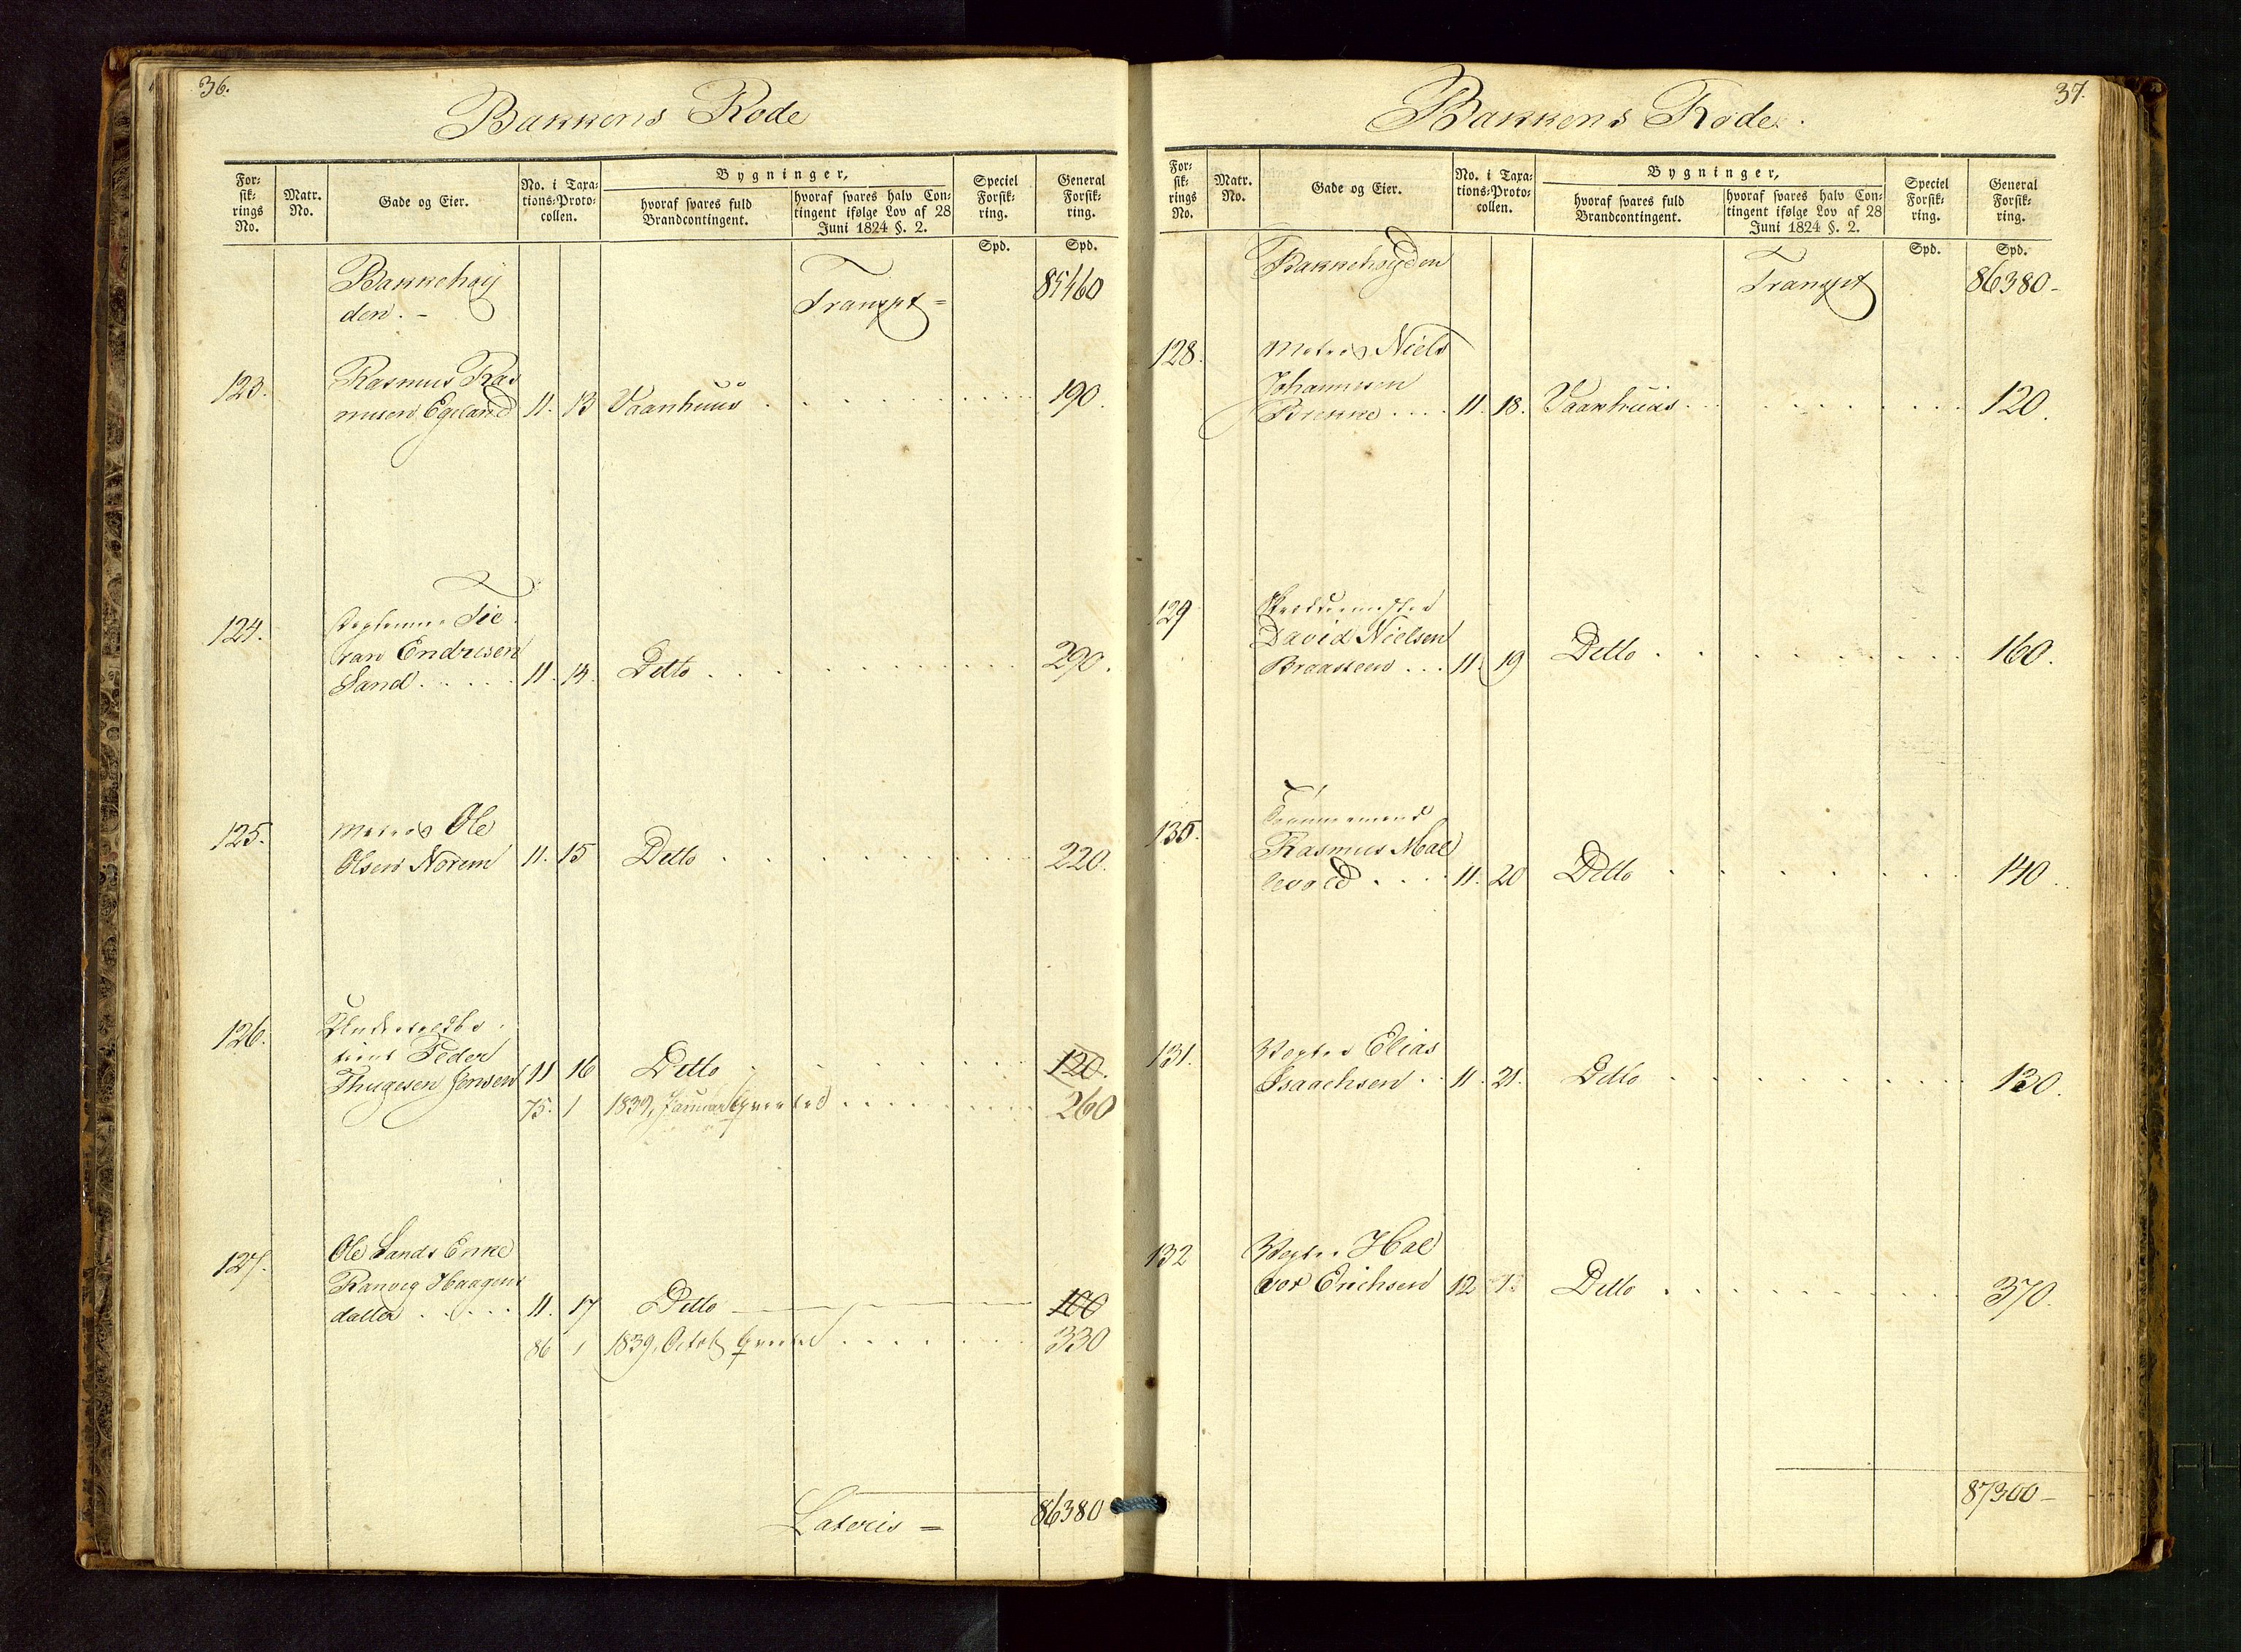 36.
Bakkens Rode
For-
sik-
rings
No.
Matr.
No.
Gade og Eier.
No. i Taxa-
tions-Proto-
collen.
Bygninger,
hvoraf svares fuld
Brandcontingent.
hvoraf svares halv Con-
tingent ifølge Lov af 28
Juni 1824 §. 2.
Speciel
Forsik-
ring.
General
Forsik-
ring.
Spd. Spd.
Bakkehøy
den. - Transpt = 85460
123. Rasmus Ras
musen Egeland 11. 13 Vaanhuus 190.
124.
Endresen
Sand 11. 14. Detto 290.
125. Matros Ole
Olsen Norem 11. 15 Detto 220.
126.
Peder
Thugesen Jensen 11 16 Detto 120.
75. 1 1839, Januar Qvartal 260
127. Ole Sands Enke
Ranveg Haagens
datter 11. 17 Detto 100
86 1 1839, Octob Qvartal 330
Lateris = 86380
37.
Bakkens Rode.
For-
sik-
rings
No.
Matr.
No.
Gade og Eier.
No. i Taxa-
tions-Proto-
collen.
Bygninger,
hvoraf svares fuld
Brandcontingent.
hvoraf svares halv Con-
tingent ifølge Lov af 28
Juni 1824 §. 2.
Speciel
Forsik-
ring.
General
Forsik-
ring.
Spd. Spd.
Bakkehøyden Transpt 86380-
128. Matros Niels
Johannesen
Brekke 11. 18. Vaanhuus 120.
129
David Nielsen
Braasteen 11. 19 Detto 160.
130. Tømmermand
Rasmus Mal
11. 20 Detto 140.
131. Vægter Elias
Isaachsen 11. 21. Detto 130.
132 Vægter Hal
vor Erichsen 12 1. Detto 370.
87300-